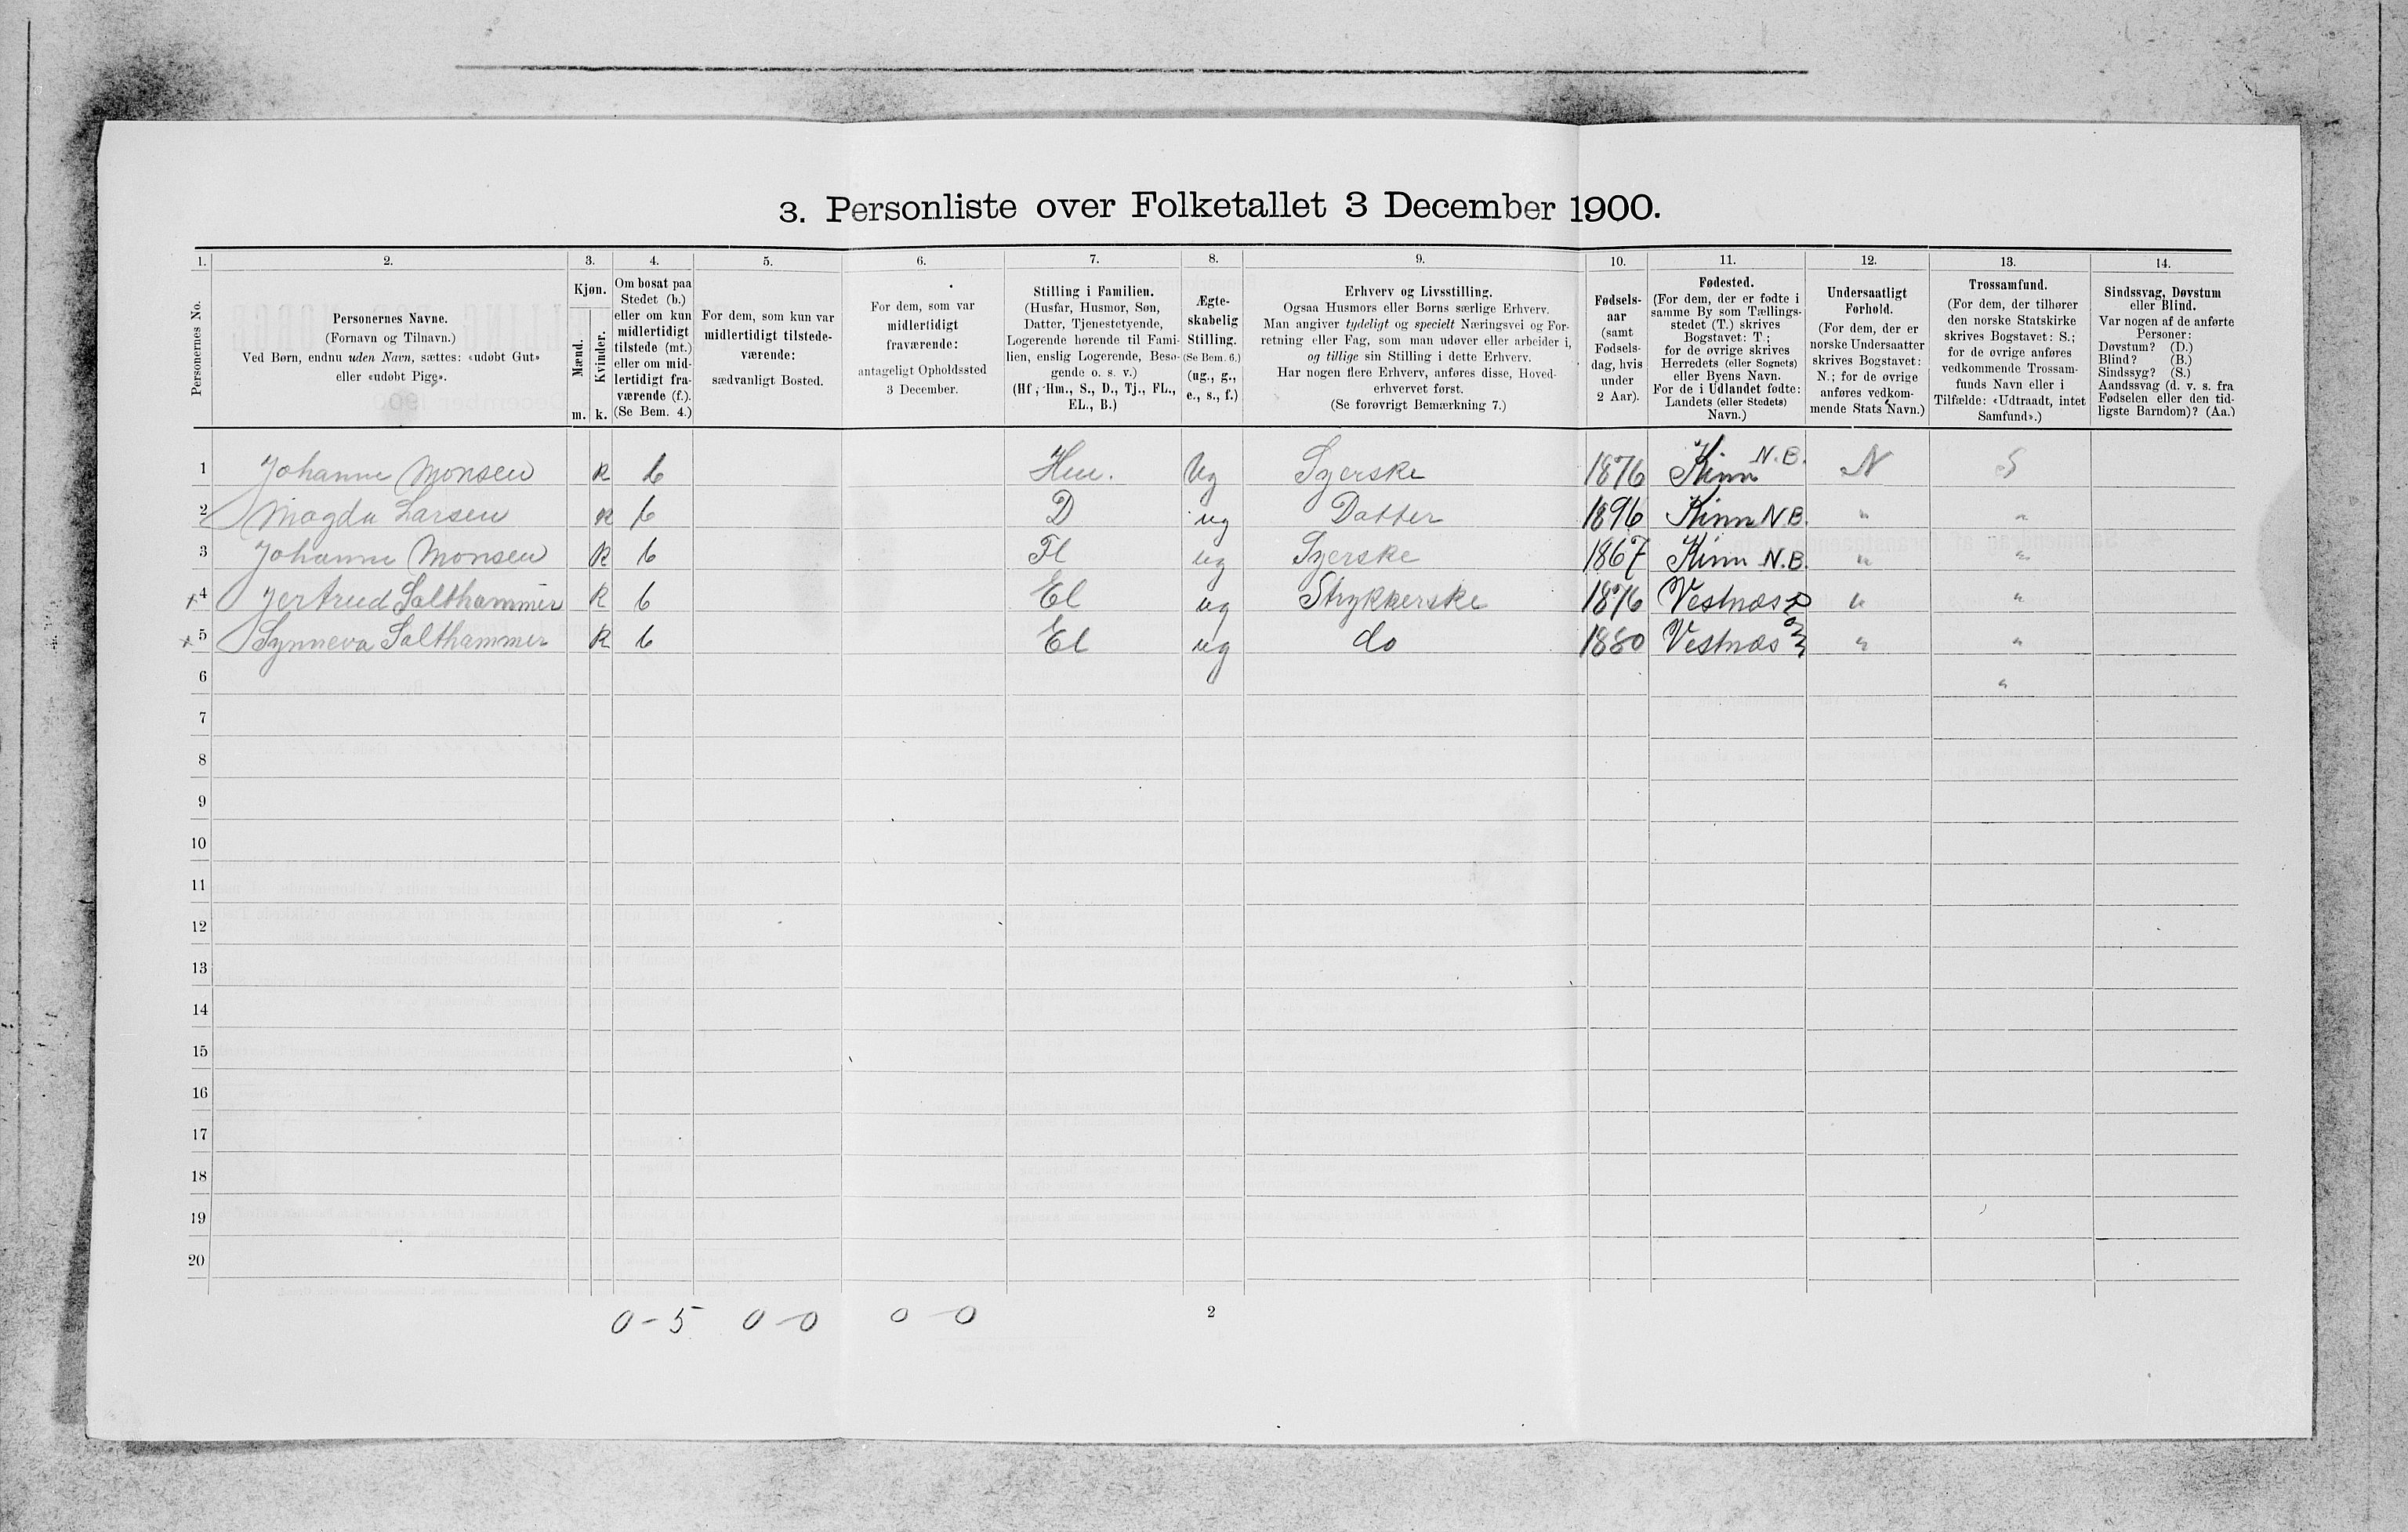 3. Personliste over Folketallet 3 December 1900.
1. 2. 3. 4. 5. 6. 7. 8. 9. 10. 11. 12. 13. 14.
Personernes No.
Personernes Navne.
(Fornavn og Tilnavn.)
Ved Børn, endnu uden Navn, sættes: «udøbt Gut»
eller «udøbt Pige».
Kjøn.
Mænd.
Kvinder.
m. k.
Om bosat paa
Stedet (b.)
eller om kun
midlertidigt
tilstede (mt.)
eller om mid-
lertidigt fra-
værende (f.).
(Se Bem. 4.)
For dem, som kun var
midlertidigt tilstede-
værende:
sædvanligt Bosted.
For dem, som var
midlertidigt
fraværende:
antageligt Opholdssted
3 December.
Stilling i Familien.
(Husfar, Husmor, Søn,
Datter, Tjenestetyende,
Logerende hørende til Fami-
lien, enslig Logerende, Besø-
gende o. s. v.)
(Hf., Hm., S., D., Tj., FL.,
EL., B.)
Ægte-
skabelig
Stilling.
(Se Bem. 6.)
(ug., g.,
e., s., f.)
Erhverv og Livsstilling.
Ogsaa Husmors eller Børns særlige Erhverv.
Man angiver tydeligt og specielt Næringsvei og For-
retning eller Fag, som man udøver eller arbeider i,
og tillige sin Stilling i dette Erhverv.
Har nogen flere Erhverv, anføres disse, Hoved-
erhvervet først.
(Se forøvrigt Bemærkning 7.)
Fødsels-
aar
(samt
Fødsels-
dag, hvis
under
2 Aar).
Fødested.
(For dem, der er fødte i
samme By som Tællings-
stedet (T.) skrives
Bogstavet: T.;
for de øvrige skrives
Herredets (eller Sognets)
eller Byens Navn.
For de i Udlandet fødte:
Landets (eller Stedets)
Navn.)
Undersaatligt
Forhold.
(For dem, der er
norske Undersaatter
skrives Bogstavet:
N.; for de øvrige
anføres vedkom-
mende Stats Navn.)
Trossamfund.
(For dem, der tilhører
den norske Statskirke
skrives Bogstavet: S.;
for de øvrige anføres
vedkommende Trossam-
funds Navn eller i
Tilfælde: «Udtraadt, intet
Samfund».)
Sindssvag, Døvstum
eller Blind.
Var nogen af de anførte
Personer:
Døvstum? (D.)
Blind? (B.)
Sindssyg? (S.)
Aandssvag (d. v. s. fra
Fødselen eller den tid-
ligste Barndom)? (Aa.)
1 Johanne Monsen K b Hm. Ug Syerske 1876 Kinn N.B. N S
2 Magda Larsen K b D ug Datter 1896 Kinn N B. " "
3 Johanne Monsen K b Fl ug Syerske 1867 Kinn N.B. " "
4 Jertrud Salthammer K b El ug Strykkerske 1876 Vestnæs " "
5 Synneva Salthammer K b El ug do 1880 Vestnæs " "
6 "
7
8
9
10
11
12
13
14
15
16
17
18
19
20
0-5 0-0 0-0 2